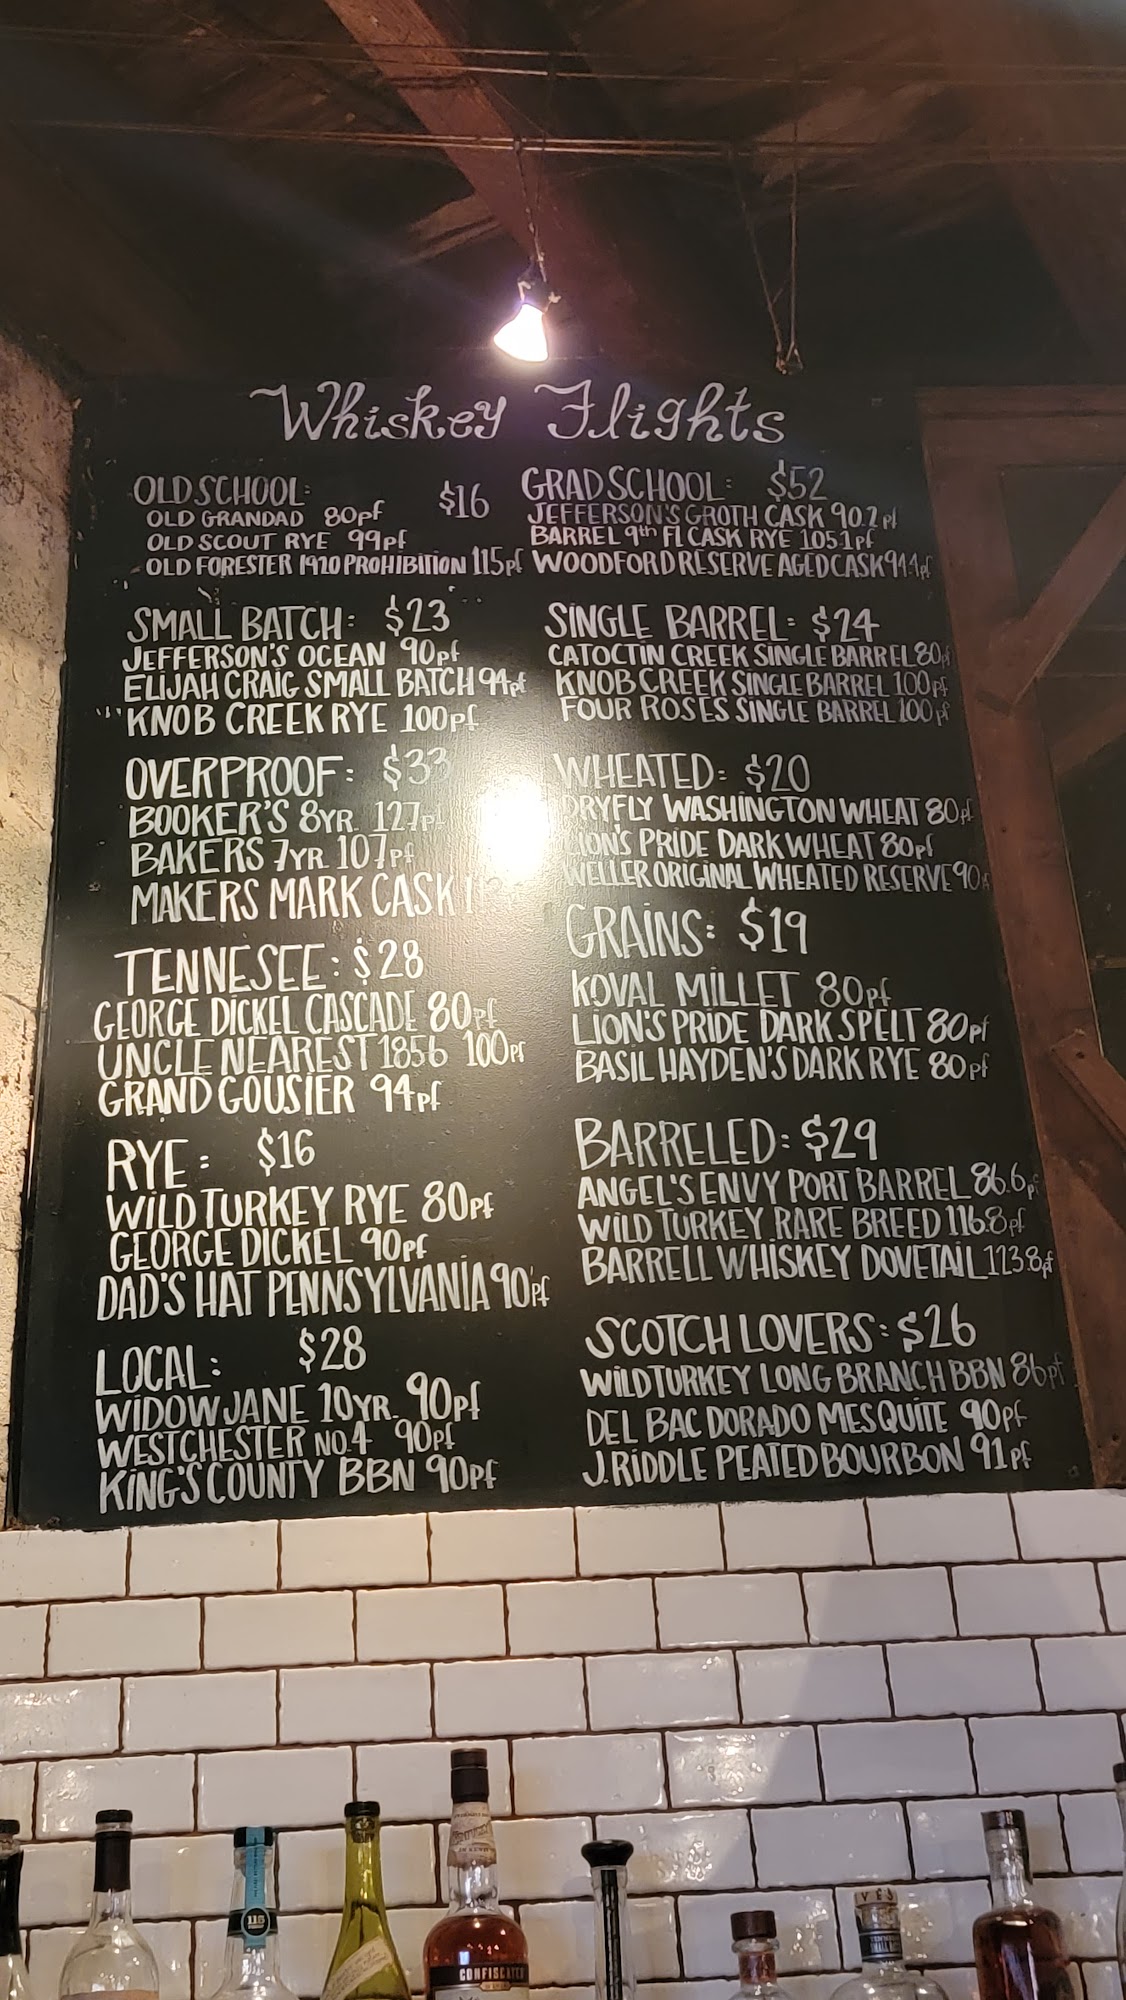 Whiskey Flights
OLD SCHOOL: $16
OLD GRANDAD 80pf
OLD SCOUT RYE 99pf
OLD FORESTER 1920 PROHIBITION 115pf
SMALL BATCH: $23
JEFFERSON'S OCEAN 90pf
ELIJAH CRAIG SMALL BATCH 94pf
KNOB CREEK RYE 100pf
OVERPROOF: $33
BOOKER'S 8YR 127pf
BAKERS 7YR 107pf
MAKERS MARK CASK
TENNESEE: $28
GEORGE DICKEL CASCADE 80pf
UNCLE NEAREST 1856 100pf
GRAND GOUSIER 94pf
RYE: $16
WILD TURKEY RYE 80pf
GEORGE DICKEL 90pf
DAD'S HAT PENNSYLVANIA 90pf
LOCAL: $28
WIDOW JANE 10YR. 90pf
WESTCHESTER NO.4 90pf
KING'S COUNTY BBN 90pf
GRAD SCHOOL: $52
JEFFERSON'S GROTH CASK 90.2pf
BARREL 9th FL CASK RYE 105.1pf
WOODFORD RESERVE AGED CASK
SINGLE BARREL: $24
CATOCTIN CREEK SINGLE BARREL 80pf
KNOB CREEK SINGLE BARREL 100pf
FOUR ROSES SINGLE BARREL 100pf
WHEATED: $20
DRYFLY WASHINGTON WHEAT 80pf
LION'S PRIDE DARK WHEAT 80pf
WELLER ORIGINAL WHEATED RESERVE 90pf
GRAINS: $19
KOVAL MILLET 80pf
LION'S PRIDE DARK SPELT 80pf
BASIL HAYDEN'S DARK RYE 80pf
BARRELED: $29
ANGEL'S ENVY PORT BARREL 86.6pf
WILD TURKEY RARE BREED 116.8pf
BARRELL WHISKEY DOVETAIL 123.8pf
SCOTCH LOVERS: $26
WILD TURKEY LONG BRANCH BBN 86pf
DEL BAC DORADO MESQUITE 90pf
J. RIDDLE PEATED BOURBON 91pf
115
CONFISCATED